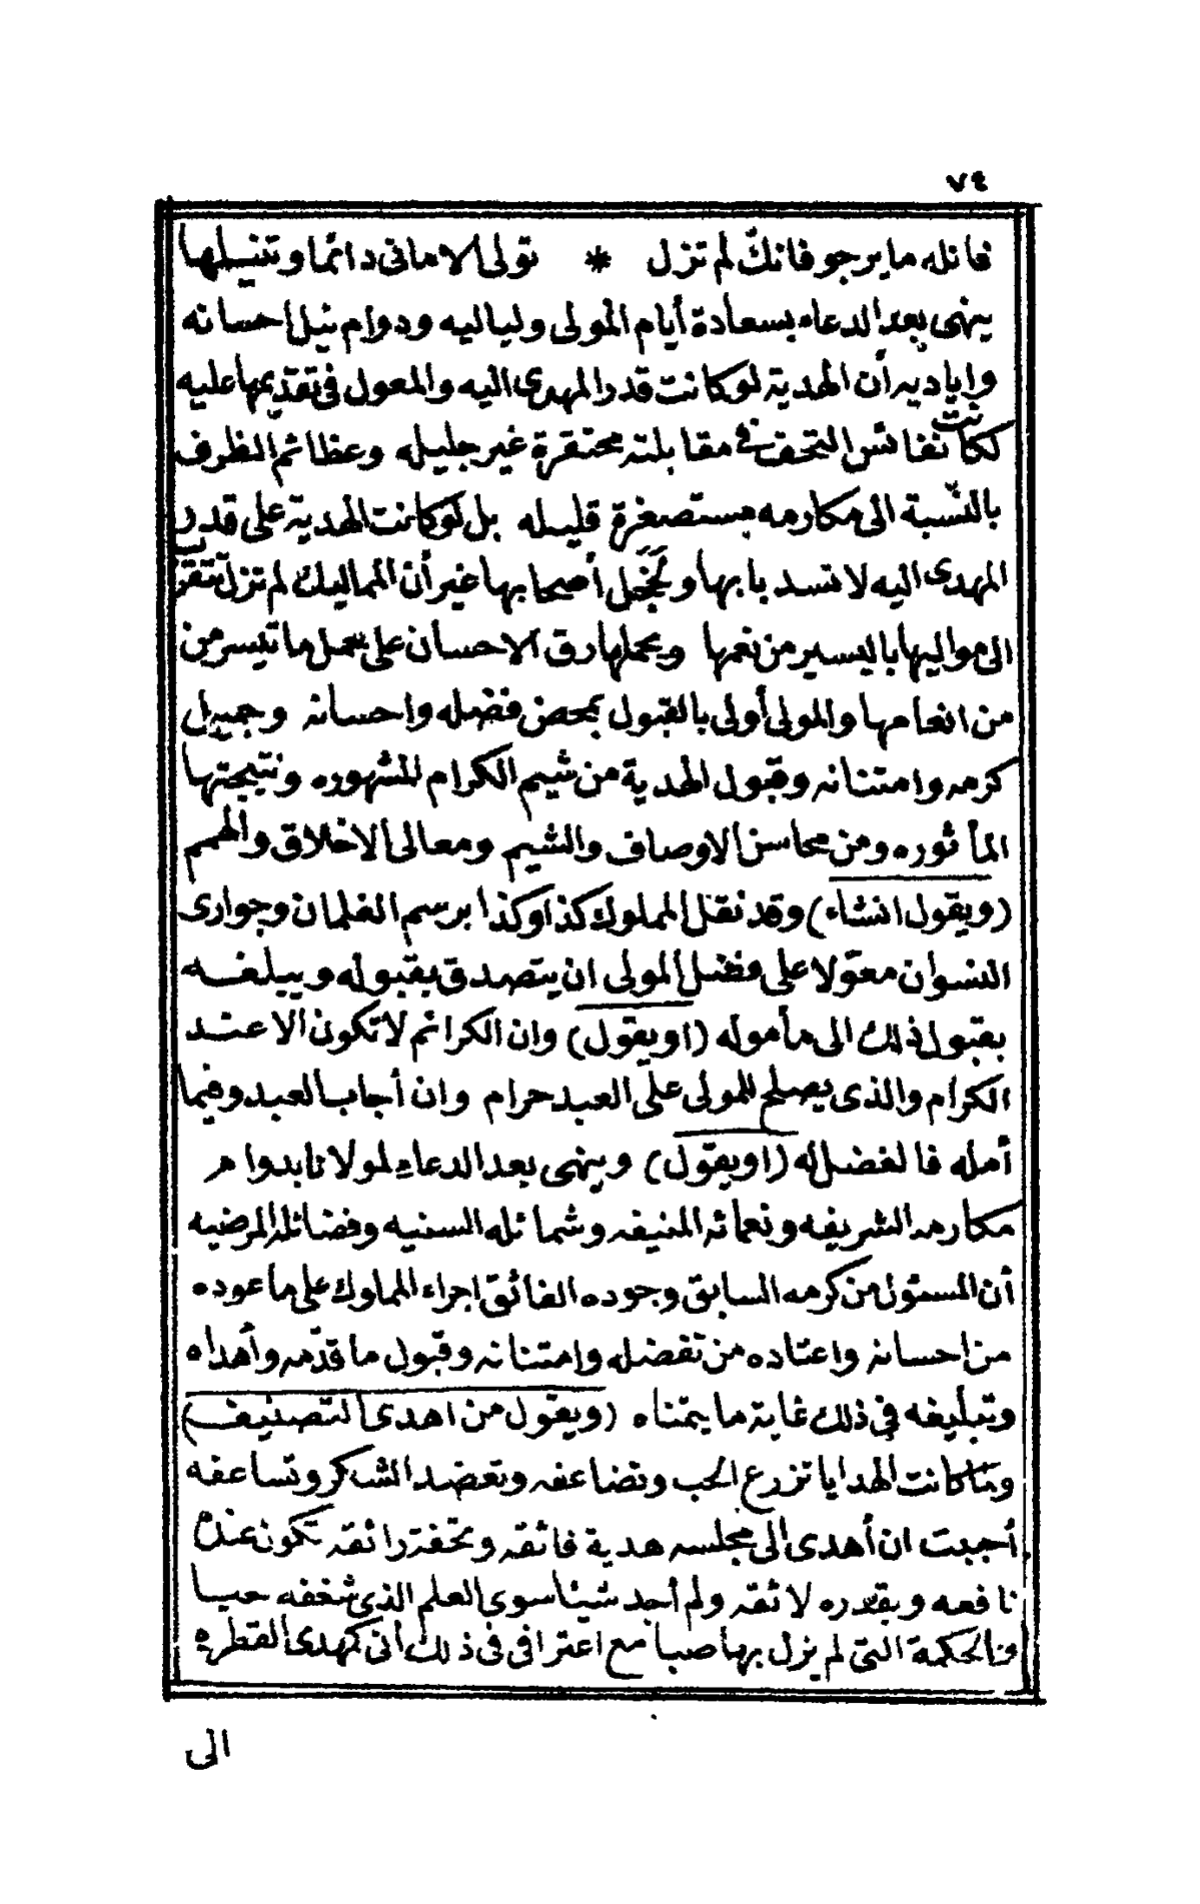 ٧٤
فانله ما يرجو فانك لم تزل * تولى الامانى دائما وتنيلها
ينهى بعد الدعاء بسعادة أيام المولى ولياليه ودوام نيل احسانه
واياديه أن الهدية لو كانت قدر المهدى اليه والمعول فى تقديمها عليه
لكانت نفائس التحف فى مقابلته محتقرة غير جليله وعظائم الظرف
بالنسبة الى مكارمه مستصغرة قليله بل لو كانت الهدية على قدر
المهدى اليه لانسد بابها ولخجل أصحابها غير أن المماليك لم تزل تتقرب
الى مواليها باليسير من نعمها ويحملها رق الاحسان على حمل ما تيسر من
من انعامها والمولى أولى بالقبول بمحض فضله واحسانه وجميل
كرمه وامتنانه وقبول الهدية من شيم الكرام المشهوره ونتيجتها
المأثوره ومن محاسن الاوصاف والشيم ومعالى الاخلاق والهمم
(ويقول انشاء) وقد نقل المملوك كذا وكذا برسم الغلمان وجوارى
النسوان معولا على فضل المولى ان يتصدق بقبوله ويبلغه
بقبول ذلك الى مأموله (او يقول) وان الكرائم لا تكون الا عند
الكرام والذى يصلح للمولى على العبد حرام وان أجاب العبد وفيما
أمله فالفضل له (او يقول) وينهى بعد الدعاء لمولانا بدوام
مكارمه الشريفه ونعمائه المنيفه وشمائله السنيه وفضائله المرضيه
أن المسئول من كرمه السابق وجوده الفائق اجراء المملوك على ما عوده
من احسانه واعتاده من تفضله وامتنانه وقبول ما قدّمه وأهداه
وتبليغه فى ذلك غاية ما يتمناه (ويقول من اهدى التصنيف)
ولما كانت الهدايا تزرع الحب وتضاعفه وتعضد الشكر وتساعفه
أحببت ان أهدى الى مجلسه هدية فائقه وتحفة رائقه تكون عنده
نافعه وبقدره لائقه ولم أجد شيئا سوى العلم الذى شغفه حبا
والحكمة التى لم يزل بها صبا مع اعترافى فى ذلك أنى كمهدى القطره
الى